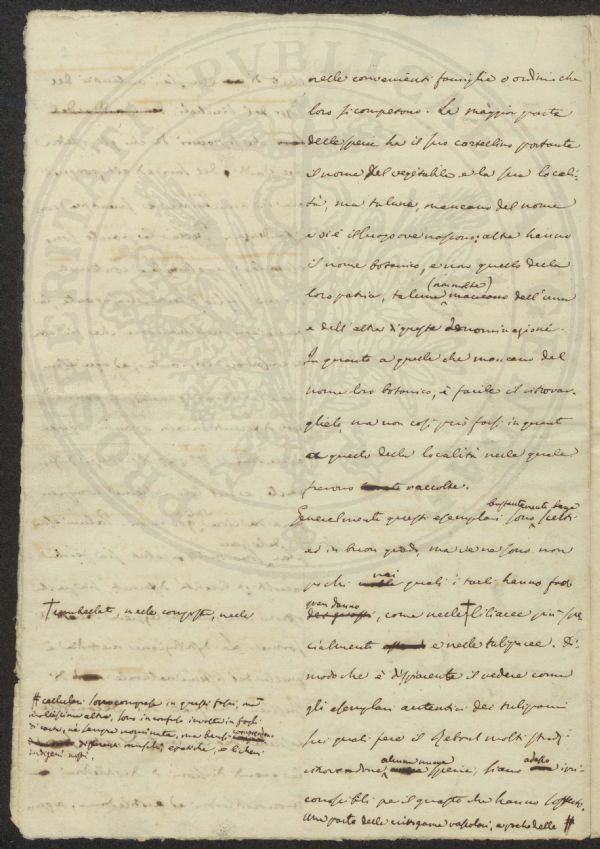 nelle convenienti famiglie o ordini che
loro si competono. La maggior parte
delle specie ha il suo cartellino portante
il nome del vegetabile e la sua locali-
tà, ma talune, mancano del nome
e vi è il luogo ove nascono; altre hanno
il nome botanico, e non quello della
loro patria, talune (non molte) mancano dell'una
e dell'altra di queste denominazioni.
In quanto a quelle che mancano del
nome loro botanico, è facile il ritrovar-
glielo, ma non così può farsi in quanto
a quello della località nella quale
furono raccolte.
Generalmente questi esemplari sono bastantemente bene scelti
ed in buon grado, ma ve ne sono non
pochi nei quali i tarli hanno fatto
gran danno, come nelle † liliacee più spe-
cialmente e nelle tulipacee. Di
modo che è dispiacente il vedere come
gli esemplari autentici dei tulipani
sui quali fece il Reboul molti studi
ritrovandone alcune nuove specie, siano adesso irri-
conoscibili per il guasto che hanno sofferto.
Una parte delle crittogame vascolari, e poche delle #
† umbellate, nelle composte, nelle
# cellulari sono comprese in questi fasci, ma
moltissime altre, sono in confuso involte in fogli
di carta, nè sempre nominate, ma bensì
differenti muschi, epatiche, e licheni
indigeni nostri.